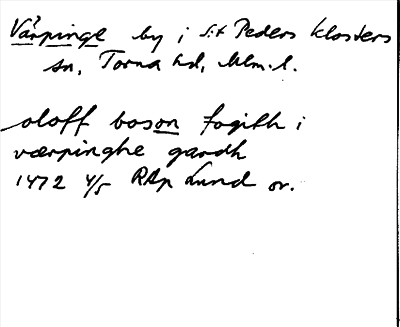 Värpinge by i S:t Peders klosters
sn, Torna hd, Mlm.l.
oloff boson fogith i
værpinghe gardh
1472 4/5 RAp Lund or.